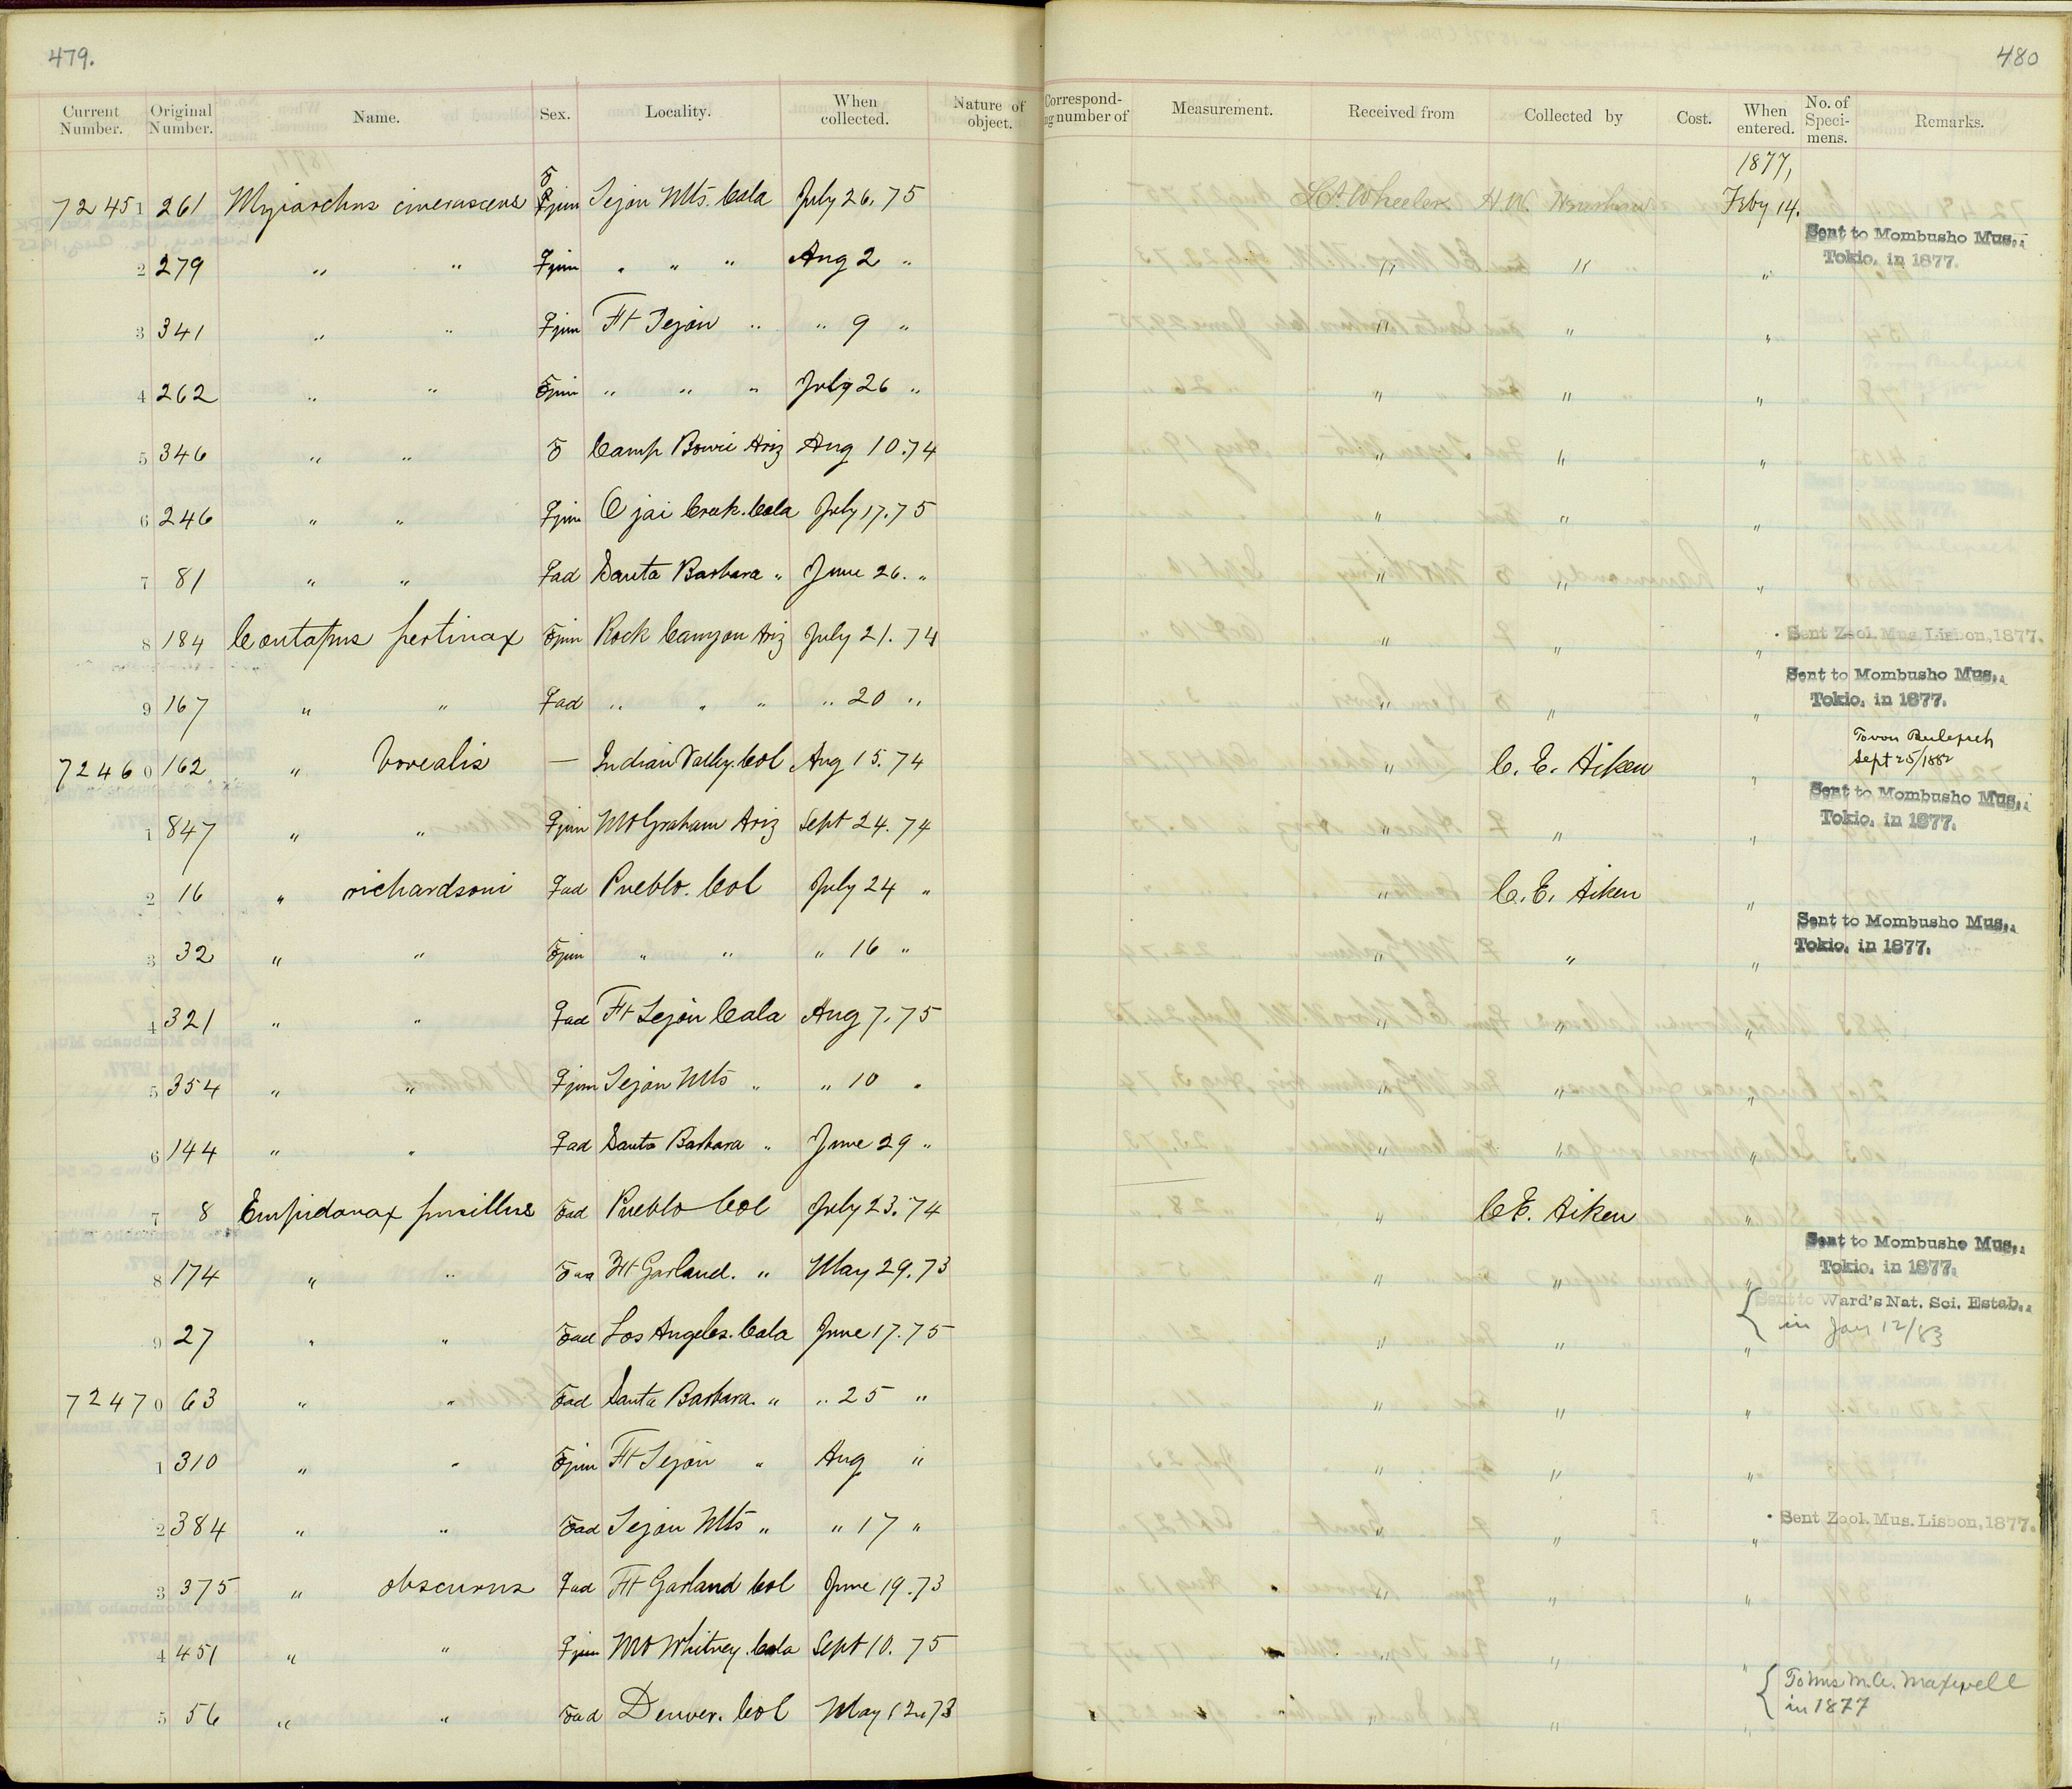 479.
480
Current Number. Original Number. Name. Sex. Locality. When collected. Nature of object. Correspond-ing number of Measurement. Received from Collected by Cost. When entered. No. of Speci-mens. Remarks.
1877,
72451 261 Myiarchus cinerascens ♀ jun Tejon Mts. Cala July 26. 75 Lt. Wheeler H. W. Henshaw Feby 14.
Sent to Mombusho Mus.,
Tokio, in 1877.
2 279 " " ♀ jun " " " Aug 2 " " " "
3 341 " " ♀ jun Ft Tejon " " 9 " " " "
4 262 " " ♂ jun " " " July 26 " " " "
5 346 " " ♂ Camp Bowie Ariz Aug 10. 74 " " "
6 246 " " ♀ jun Ojai Creek. Cala July 17. 75 " " "
7 81 " " ♀ ad Santa Barbara " June 26. " " " "
8 184 Contopus pertinax ♂ jun Rock Canyon Ariz July 21. 74 " " " Sent Zool. Mus. Lisbon, 1877.
Sent to Mombusho Mus.,
Tokio, in 1877.
9 167 " " ♀ ad " " " " 20 " " " "
To von Berlepsch
Sept 25/1882
72460 162 " borealis — Indian Valley. Col Aug 15. 74 " C. E. Aiken "
Sent to Mombusho Mus.,
Tokio, in 1877.
1 847 " " ♀ jun Mt Graham Ariz Sept 24. 74 " " "
2 16 " richardsoni ♀ ad Pueblo. Col July 24 " " C. E. Aiken "
Sent to Mombusho Mus.,
Tokio, in 1877.
3 32 " " ♂ jun " " " 16 " " " "
4 321 " " ♀ ad Ft Tejon Cala Aug 7. 75 " " "
5 354 " " ♀ jun Tejon Mts " " 10 " " " "
6 144 " " ♀ ad Santa Barbara " June 29 " " " "
7 8 Empidonax pusillus ♂ ad Pueblo Col July 23. 74 " C. E. Aiken "
Sent to Mombusho Mus.,
Tokio, in 1877.
8 174 " " ♂ ad Ft Garland. " May 29. 73 " " "
Sent to Ward's Nat. Sci. Estab.,
in Jan 12/83
9 27 " " ♂ ad Los Angeles. Cala June 17. 75 " " "
72470 63 " " ♂ ad Santa Barbara. " " 25 " " " "
1 310 " " ♂ jun Ft Tejon " Aug " " " "
2 384 " " ♂ ad Tejon Mts " " 17 " " " " Sent Zool. Mus. Lisbon, 1877.
3 375 " obscurus ♀ ad Ft Garland Col June 19. 73 " " "
4 451 " " ♀ jun Mt Whitney. Cala Sept 10. 75 " " "
To Mrs M. A. Maxwell
in 1877
5 56 " " ♂ ad Denver. Col May 12. 73 " " "